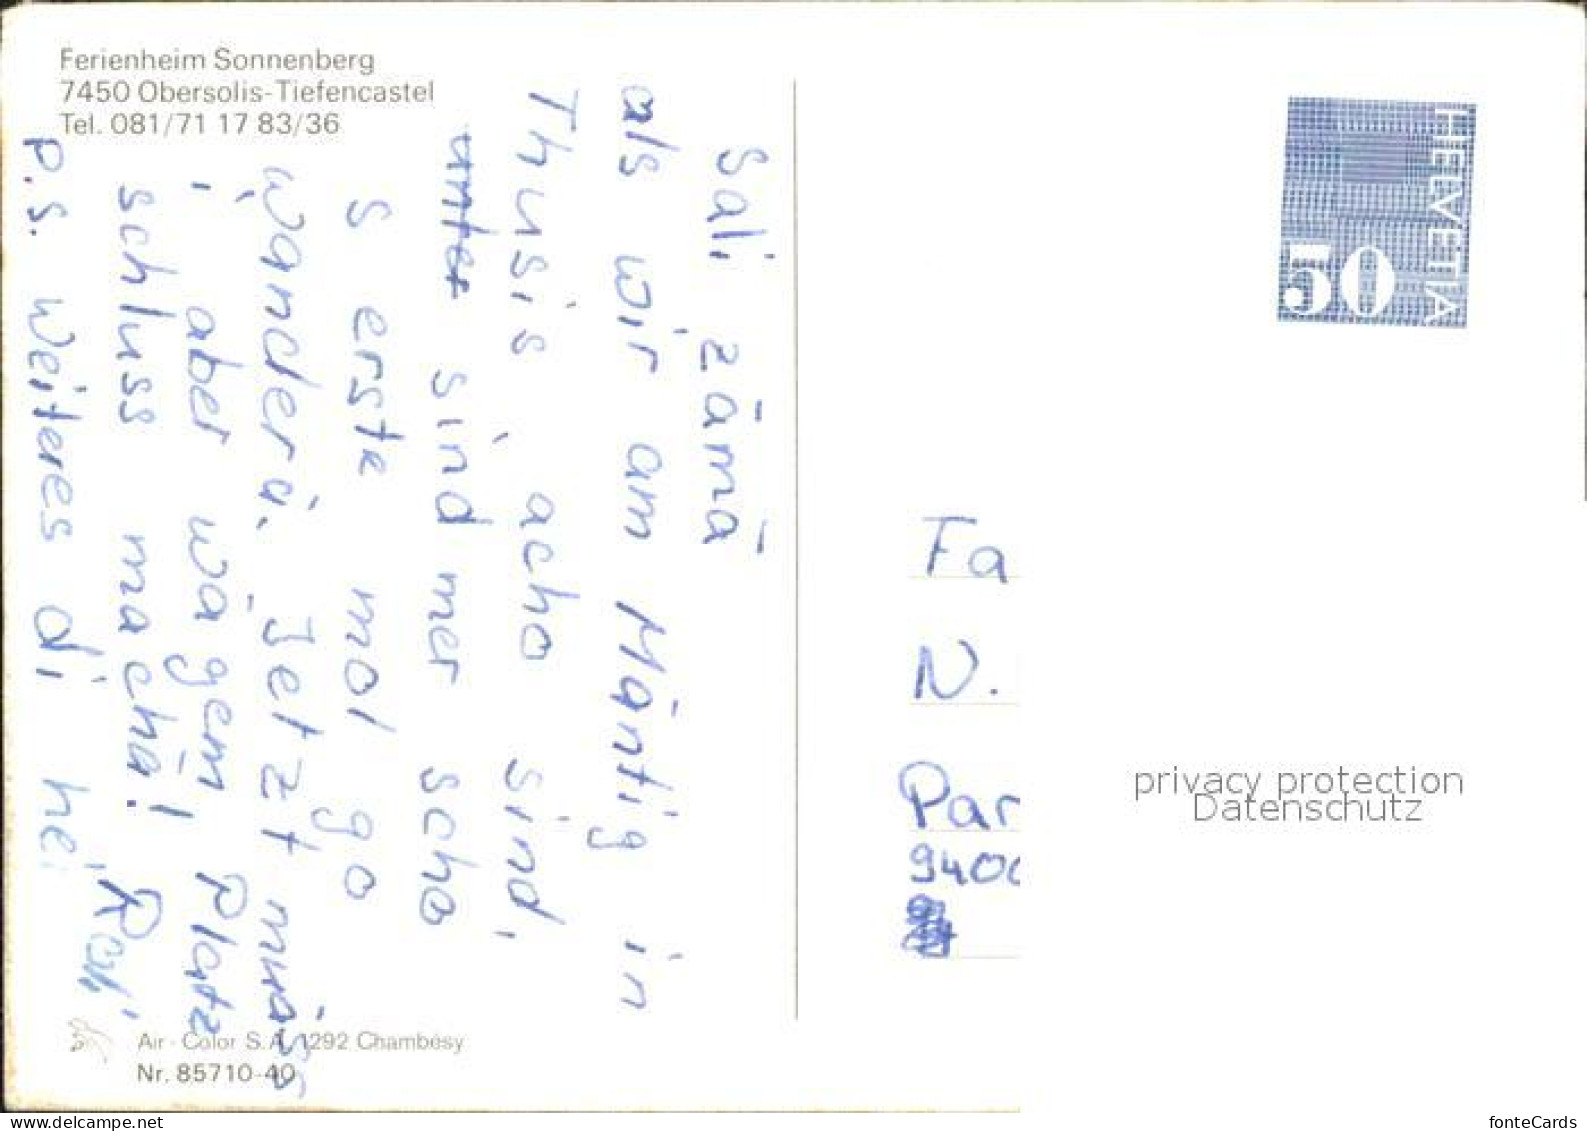 Ferienheim Sonnenberg
7450 Obersolis-Tiefencastel
Tel. 081/71 17 83/36
Sali zämä
als wir am Mäntig in
Thusis acho sind,
unter sind mer scho
s erste mol go
wanderä. Jetzt muäss
i aber wägem Platz
schluss machä!
P.S. weiteres di hei
HELVETIA
50
Fa
N.
Par
940
privacy protection
Datenschutz
Air-Color S.A. 1292 Chambésy
Nr. 85710-40
www.delcampe.net
fonteCards